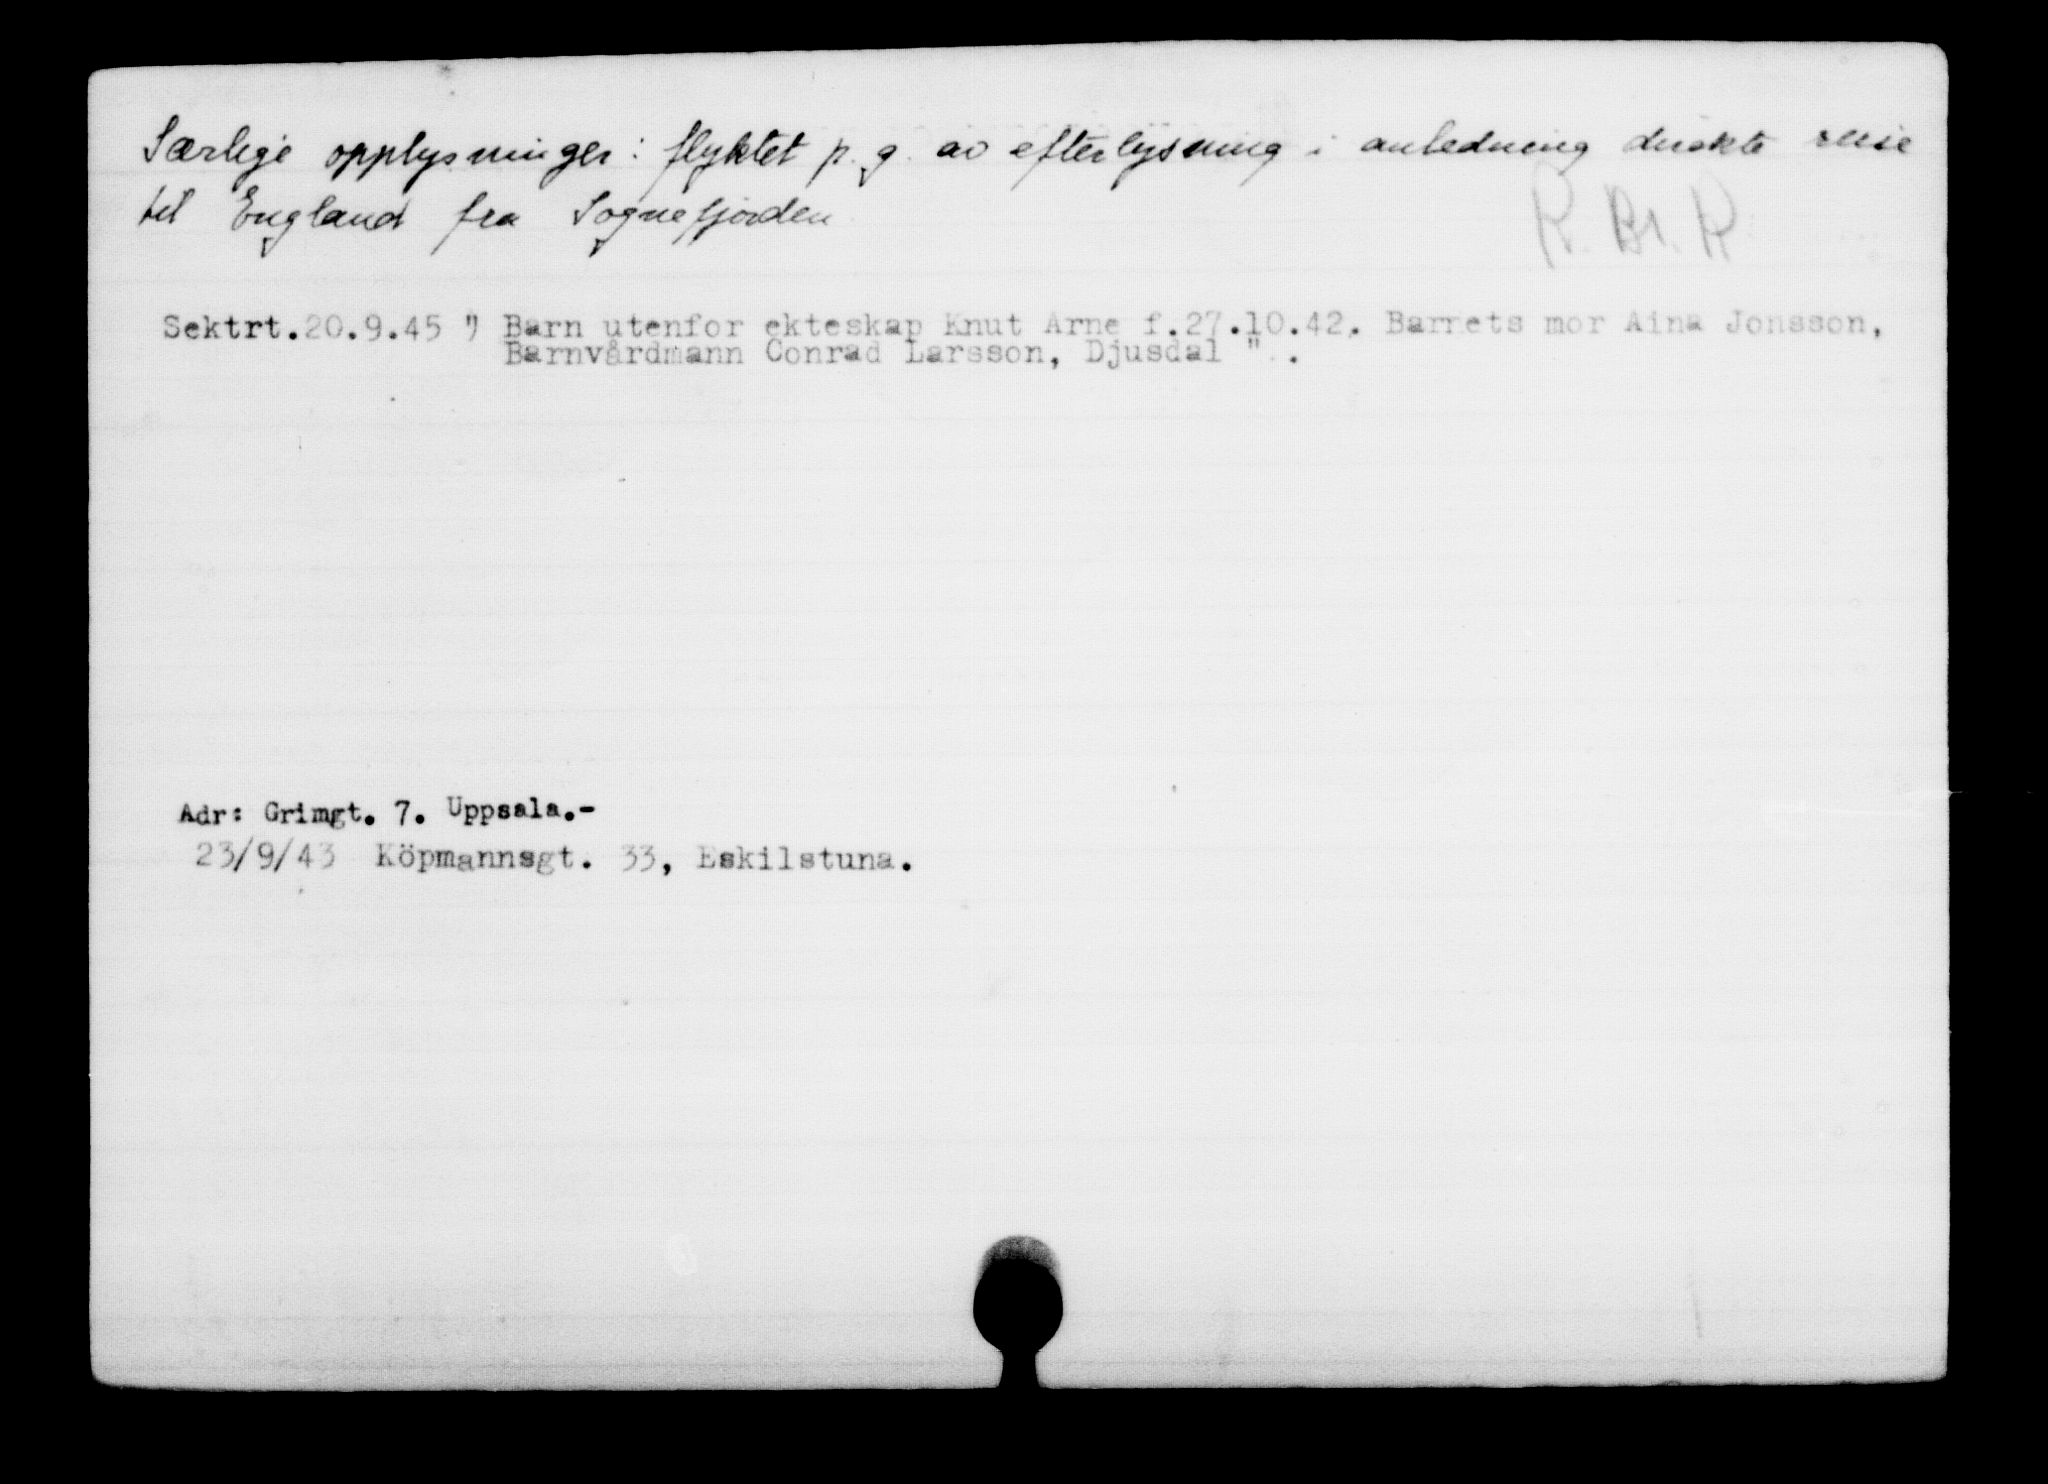 Særlige opplysninger: flyktet p. g. av efterlysning i anledning direkte reise
til England fra Sognefjorden
R. Br. R
Sektrt.20.9.45 " Barn utenfor ekteskap Knut Arne f.27.10.42. Barnets mor Aina Jonsson,
Barnvårdmann Conrad Larsson, Djusdal " .
Adr: Grimgt. 7. Uppsala.-
23/9/43 Köpmannsgt. 33, Eskilstuna.